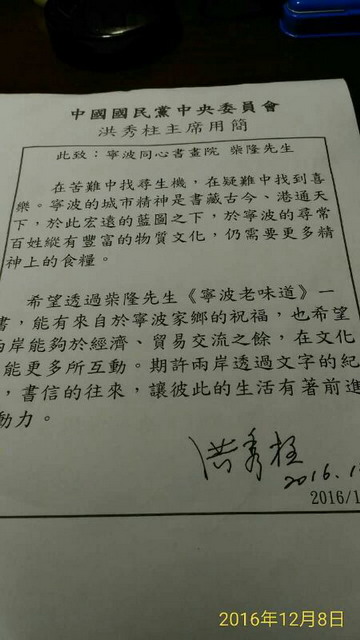 中國國民黨中央委員會
洪秀柱主席用簡
此致：寧波同心書畫院 柴隆先生
在苦難中找尋生機，在疑難中找到喜
樂。寧波的城市精神是書藏古今、港通天
下，於此宏遠的藍圖之下，於寧波的尋常
百姓縱有豐富的物質文化，仍需要更多精
神上的食糧。
希望透過柴隆先生《寧波老味道》一
書，能有來自於寧波家鄉的祝福，也希望
兩岸能夠於經濟、貿易交流之餘，在文化
能更多所互動。期許兩岸透過文字的紀
，書信的往來，讓彼此的生活有著前進
動力。
洪秀柱
2016.1
2016/1
2016年12月8日